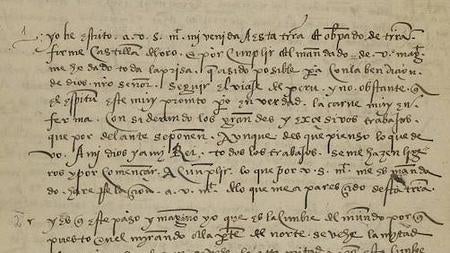 yo he escrito . a . v . s . mt . mi venida a esta trra & obpado de trra
firme Castilla del oro . & por cumplir el mandado . de . v . magt .
me he dado toda la priesa . q a sido posible pa con la bendiçion .
de dios . nro señor . seguir el viaje de peru . y no . obstante . q
el espiritu este muy prompto pa en verdad . la carne muy en
ferma . Considerando los grandes y excesivos trabajos .
que por delante se ponen . Aunque des que pienso lo que de
vo . A mi dios y a mi Rei . todos los trabajos . se me hazen lige
ros y por comencar . A cumplir . lo que por v . s . mt . me es manda
do . hare Relaçion . a . v . mt . de lo que me a pareçido desta trra .
y es q este paso y magino yo que es la lumbre del mundo por q
puesto en el mirando a la pte del norte . se vehe la mitad